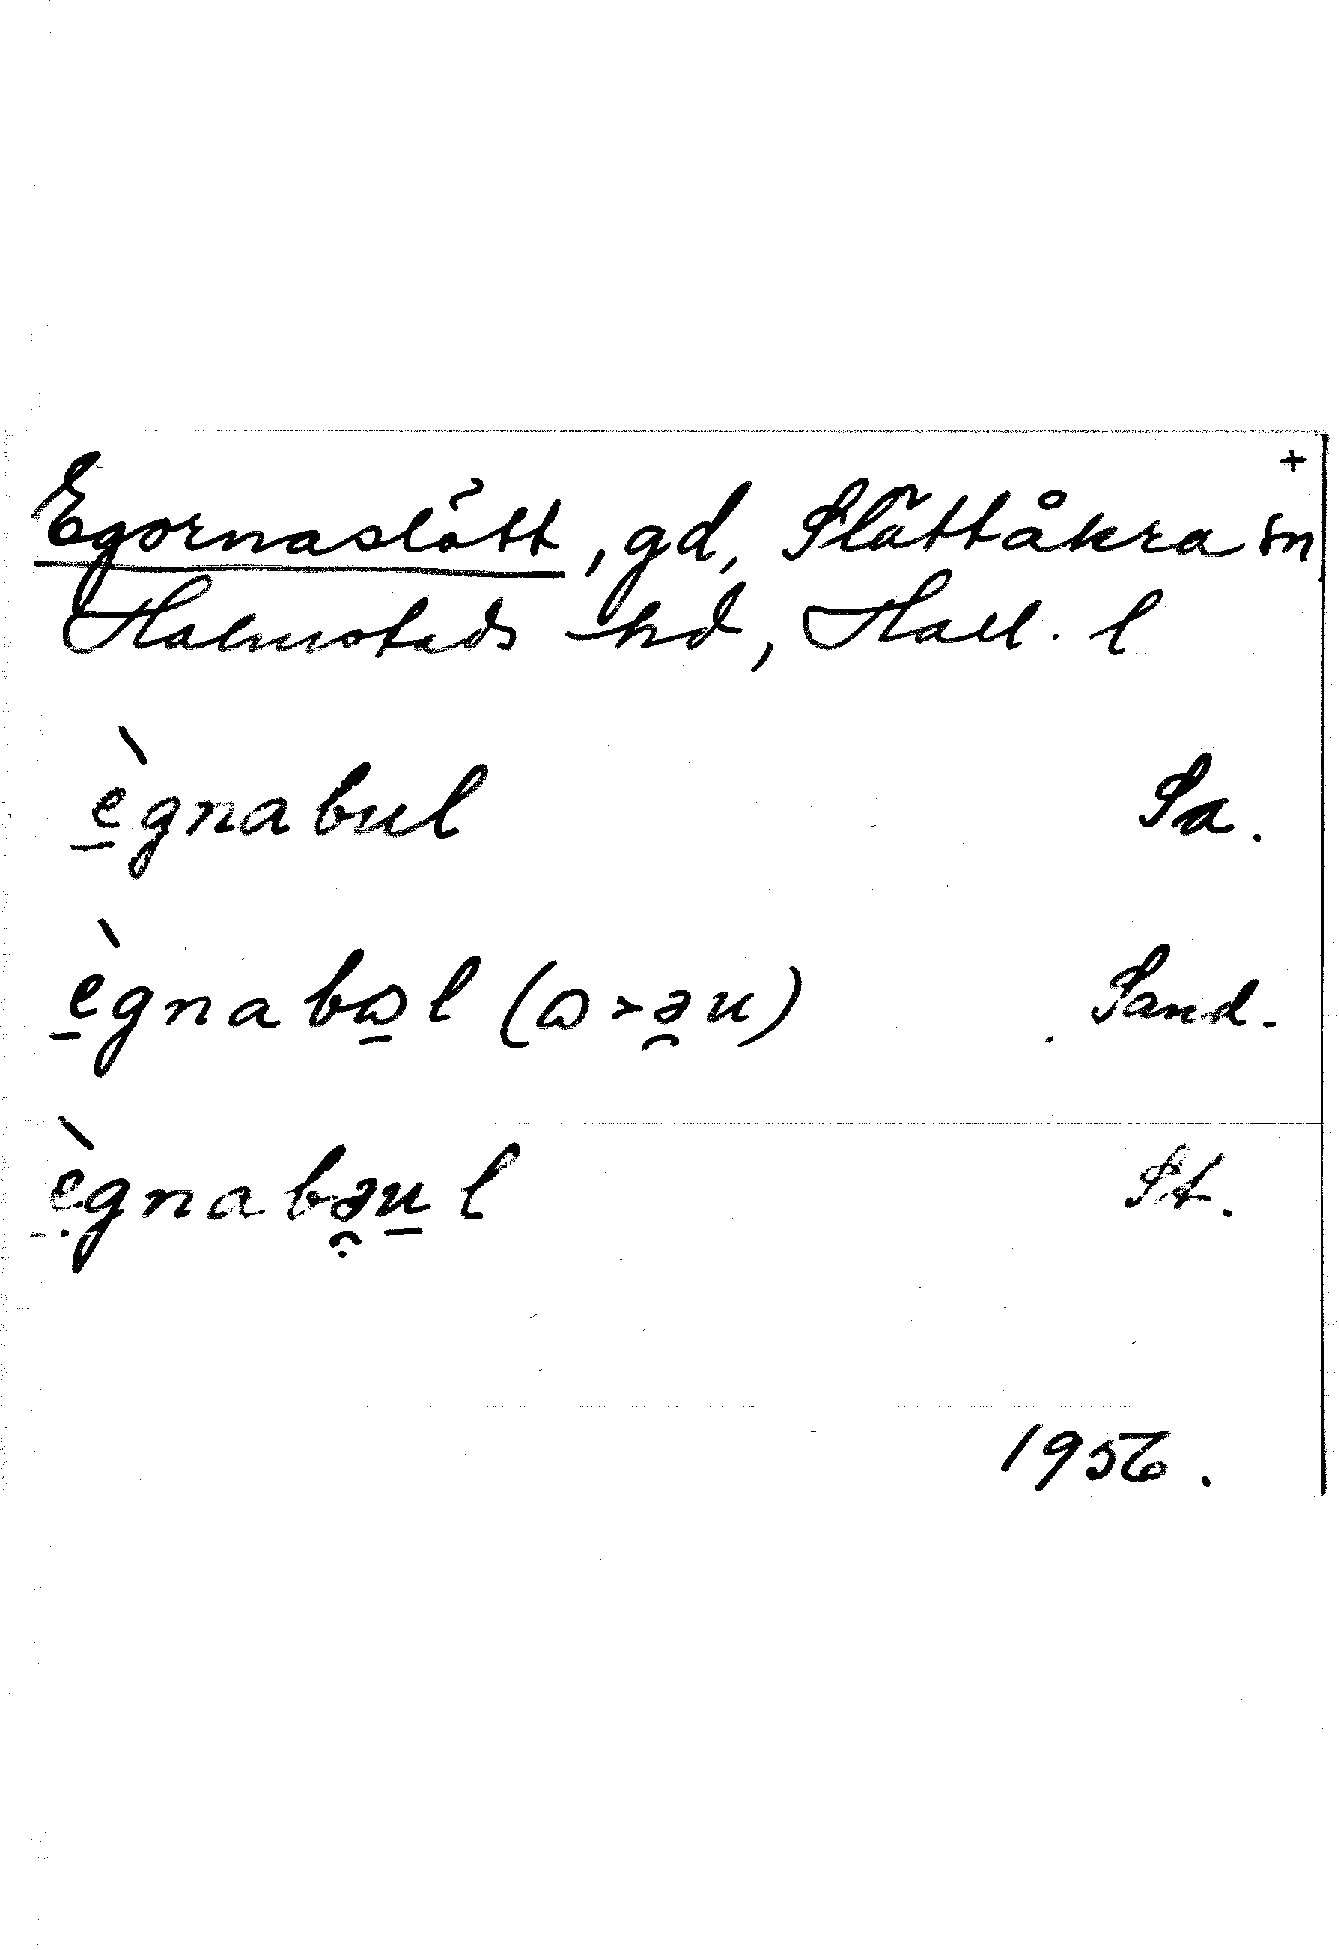 +
Egornaslätt, gd, Slättåkra sn
Halmstads hd, Hall. l
è̱gnabul Sa.
è̱gnabɷ̱l (ɷ > ə̯u) Sand.
è̱gnabə̯u̱l St.
1956.